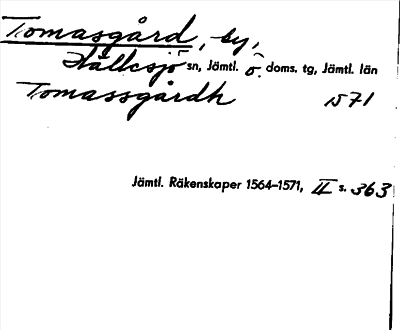 Tomasgård, by,
Hällesjö sn, Jämtl. ö. doms. tg, Jämtl. län
Tomassgårdh 1571
Jämtl. Räkenskaper 1564–1571, II s. 363